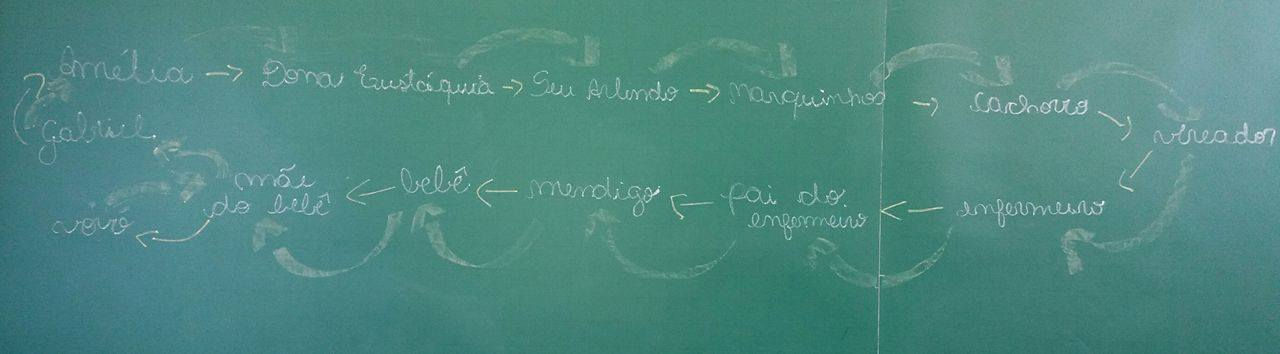 Amélia → Dona Eustáquia → Seu Arlindo → Marquinhos → cachorro
Gabriel
vereador
mãe do bebê ← bebê ← mendigo ← pai do enfermeiro ← enfermeiro
vovó